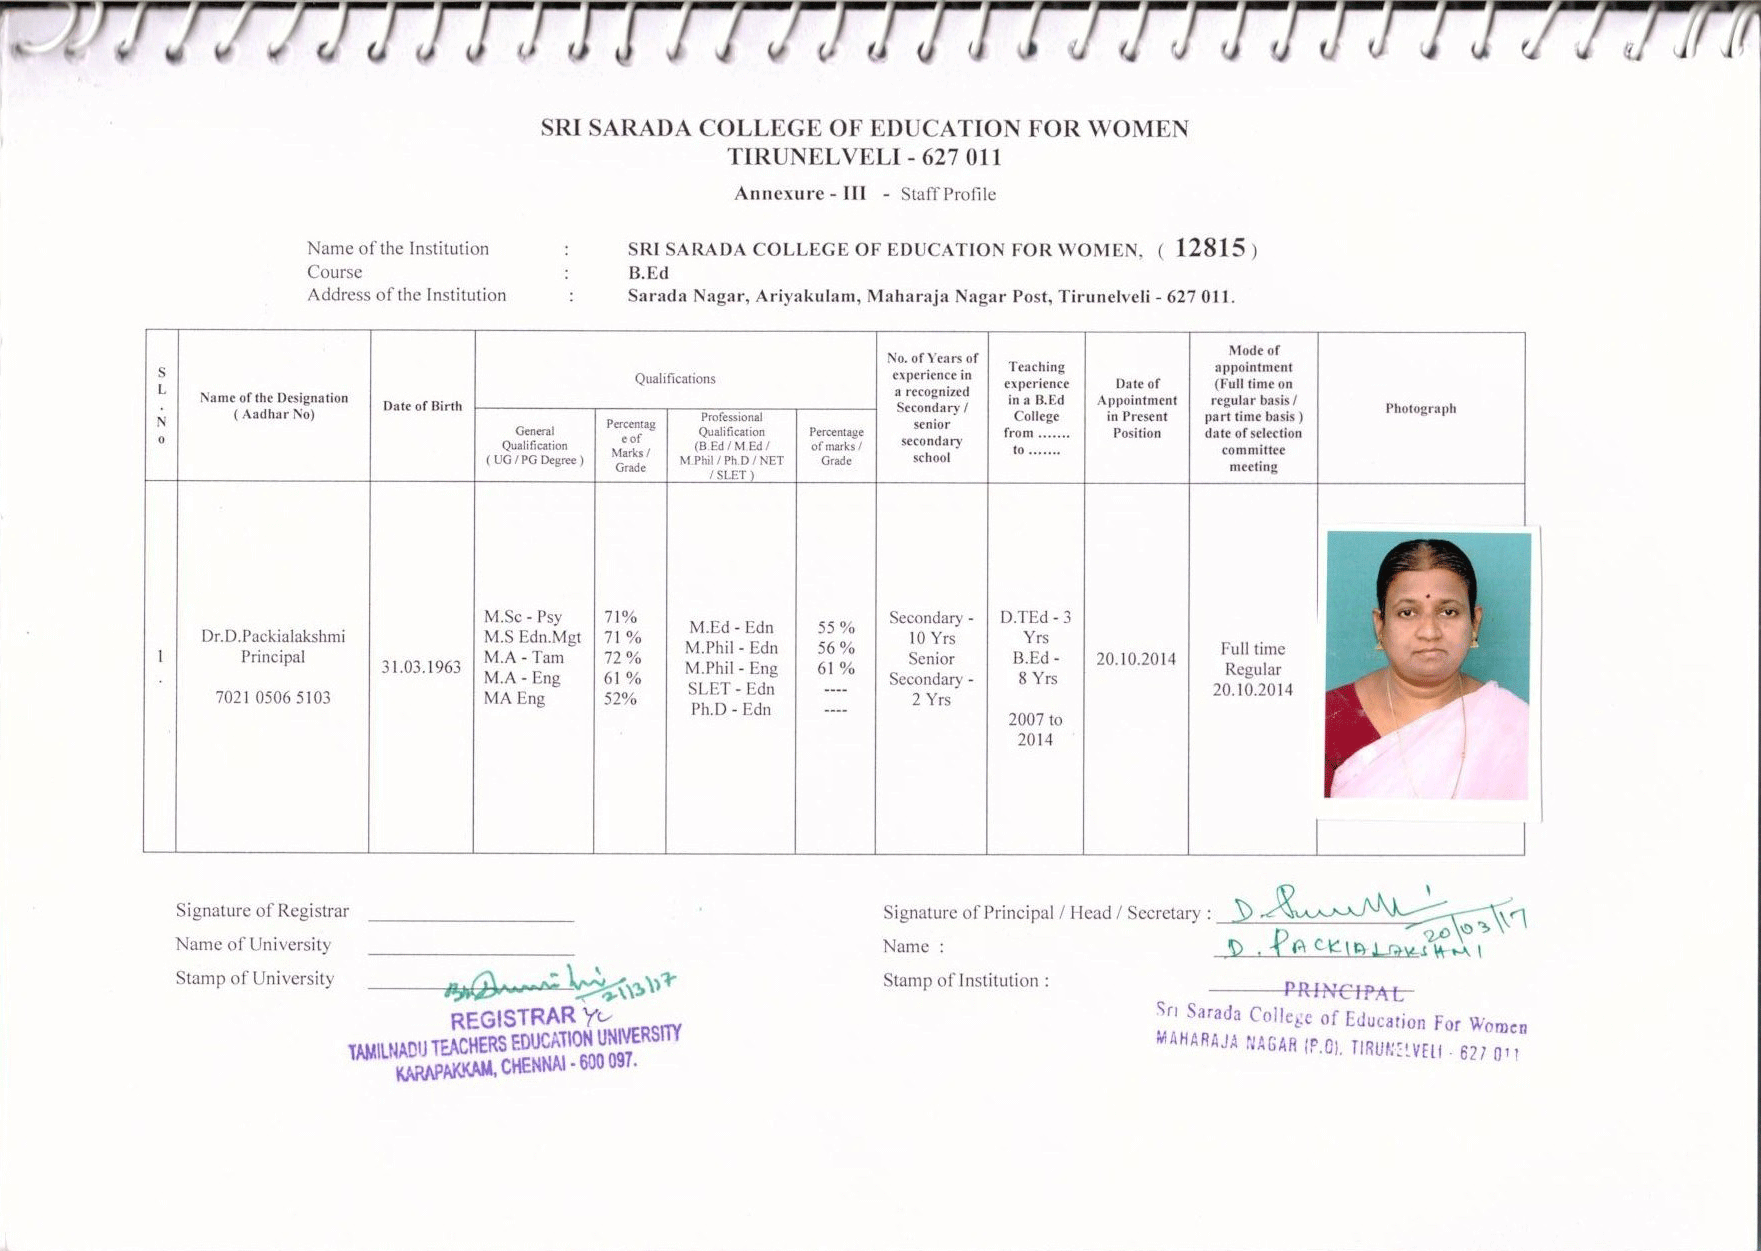 SRI SARADA COLLEGE OF EDUCATION FOR WOMEN
TIRUNELVELI - 627 011
Annexure - III - Staff Profile
Name of the Institution : SRI SARADA COLLEGE OF EDUCATION FOR WOMEN, ( 12815 )
Course : B.Ed
Address of the Institution : Sarada Nagar, Ariyakulam, Maharaja Nagar Post, Tirunelveli - 627 011.
SL.No
Name of the Designation
( Aadhar No)
Date of Birth
Qualifications
General
Qualification
( UG / PG Degree )
Percentag
e of
Marks /
Grade
Professional
Qualification
(B.Ed / M.Ed /
M.Phil / Ph.D / NET
/ SLET )
Percentage
of marks /
Grade
No. of Years of
experience in
a recognized
Secondary /
senior
secondary
school
Teaching
experience
in a B.Ed
College
from .......
to .......
Date of
Appointment
in Present
Position
Mode of
appointment
(Full time on
regular basis /
part time basis )
date of selection
committee
meeting
Photograph
1
.
Dr.D.Packialakshmi
Principal
7021 0506 5103
31.03.1963
M.Sc - Psy 71%
M.S Edn.Mgt 71 %
M.A - Tam 72 %
M.A - Eng 61 %
MA Eng 52%
M.Ed - Edn 55 %
M.Phil - Edn 56 %
M.Phil - Eng 61 %
SLET - Edn ----
Ph.D - Edn ----
Secondary -
10 Yrs
Senior
Secondary -
2 Yrs
D.TEd - 3
Yrs
B.Ed -
8 Yrs
2007 to
2014
20.10.2014
Full time
Regular
20.10.2014
Signature of Registrar
Name of University
Stamp of University
21/3/17
REGISTRAR
TAMILNADU TEACHERS EDUCATION UNIVERSITY
KARAPAKKAM, CHENNAI - 600 097.
Signature of Principal / Head / Secretary :
20/03/17
Name : D. PACKIALAKSHMI
Stamp of Institution :
PRINCIPAL
Sri Sarada College of Education For Women
MAHARAJA NAGAR (P.O), TIRUNELVELI - 627 011